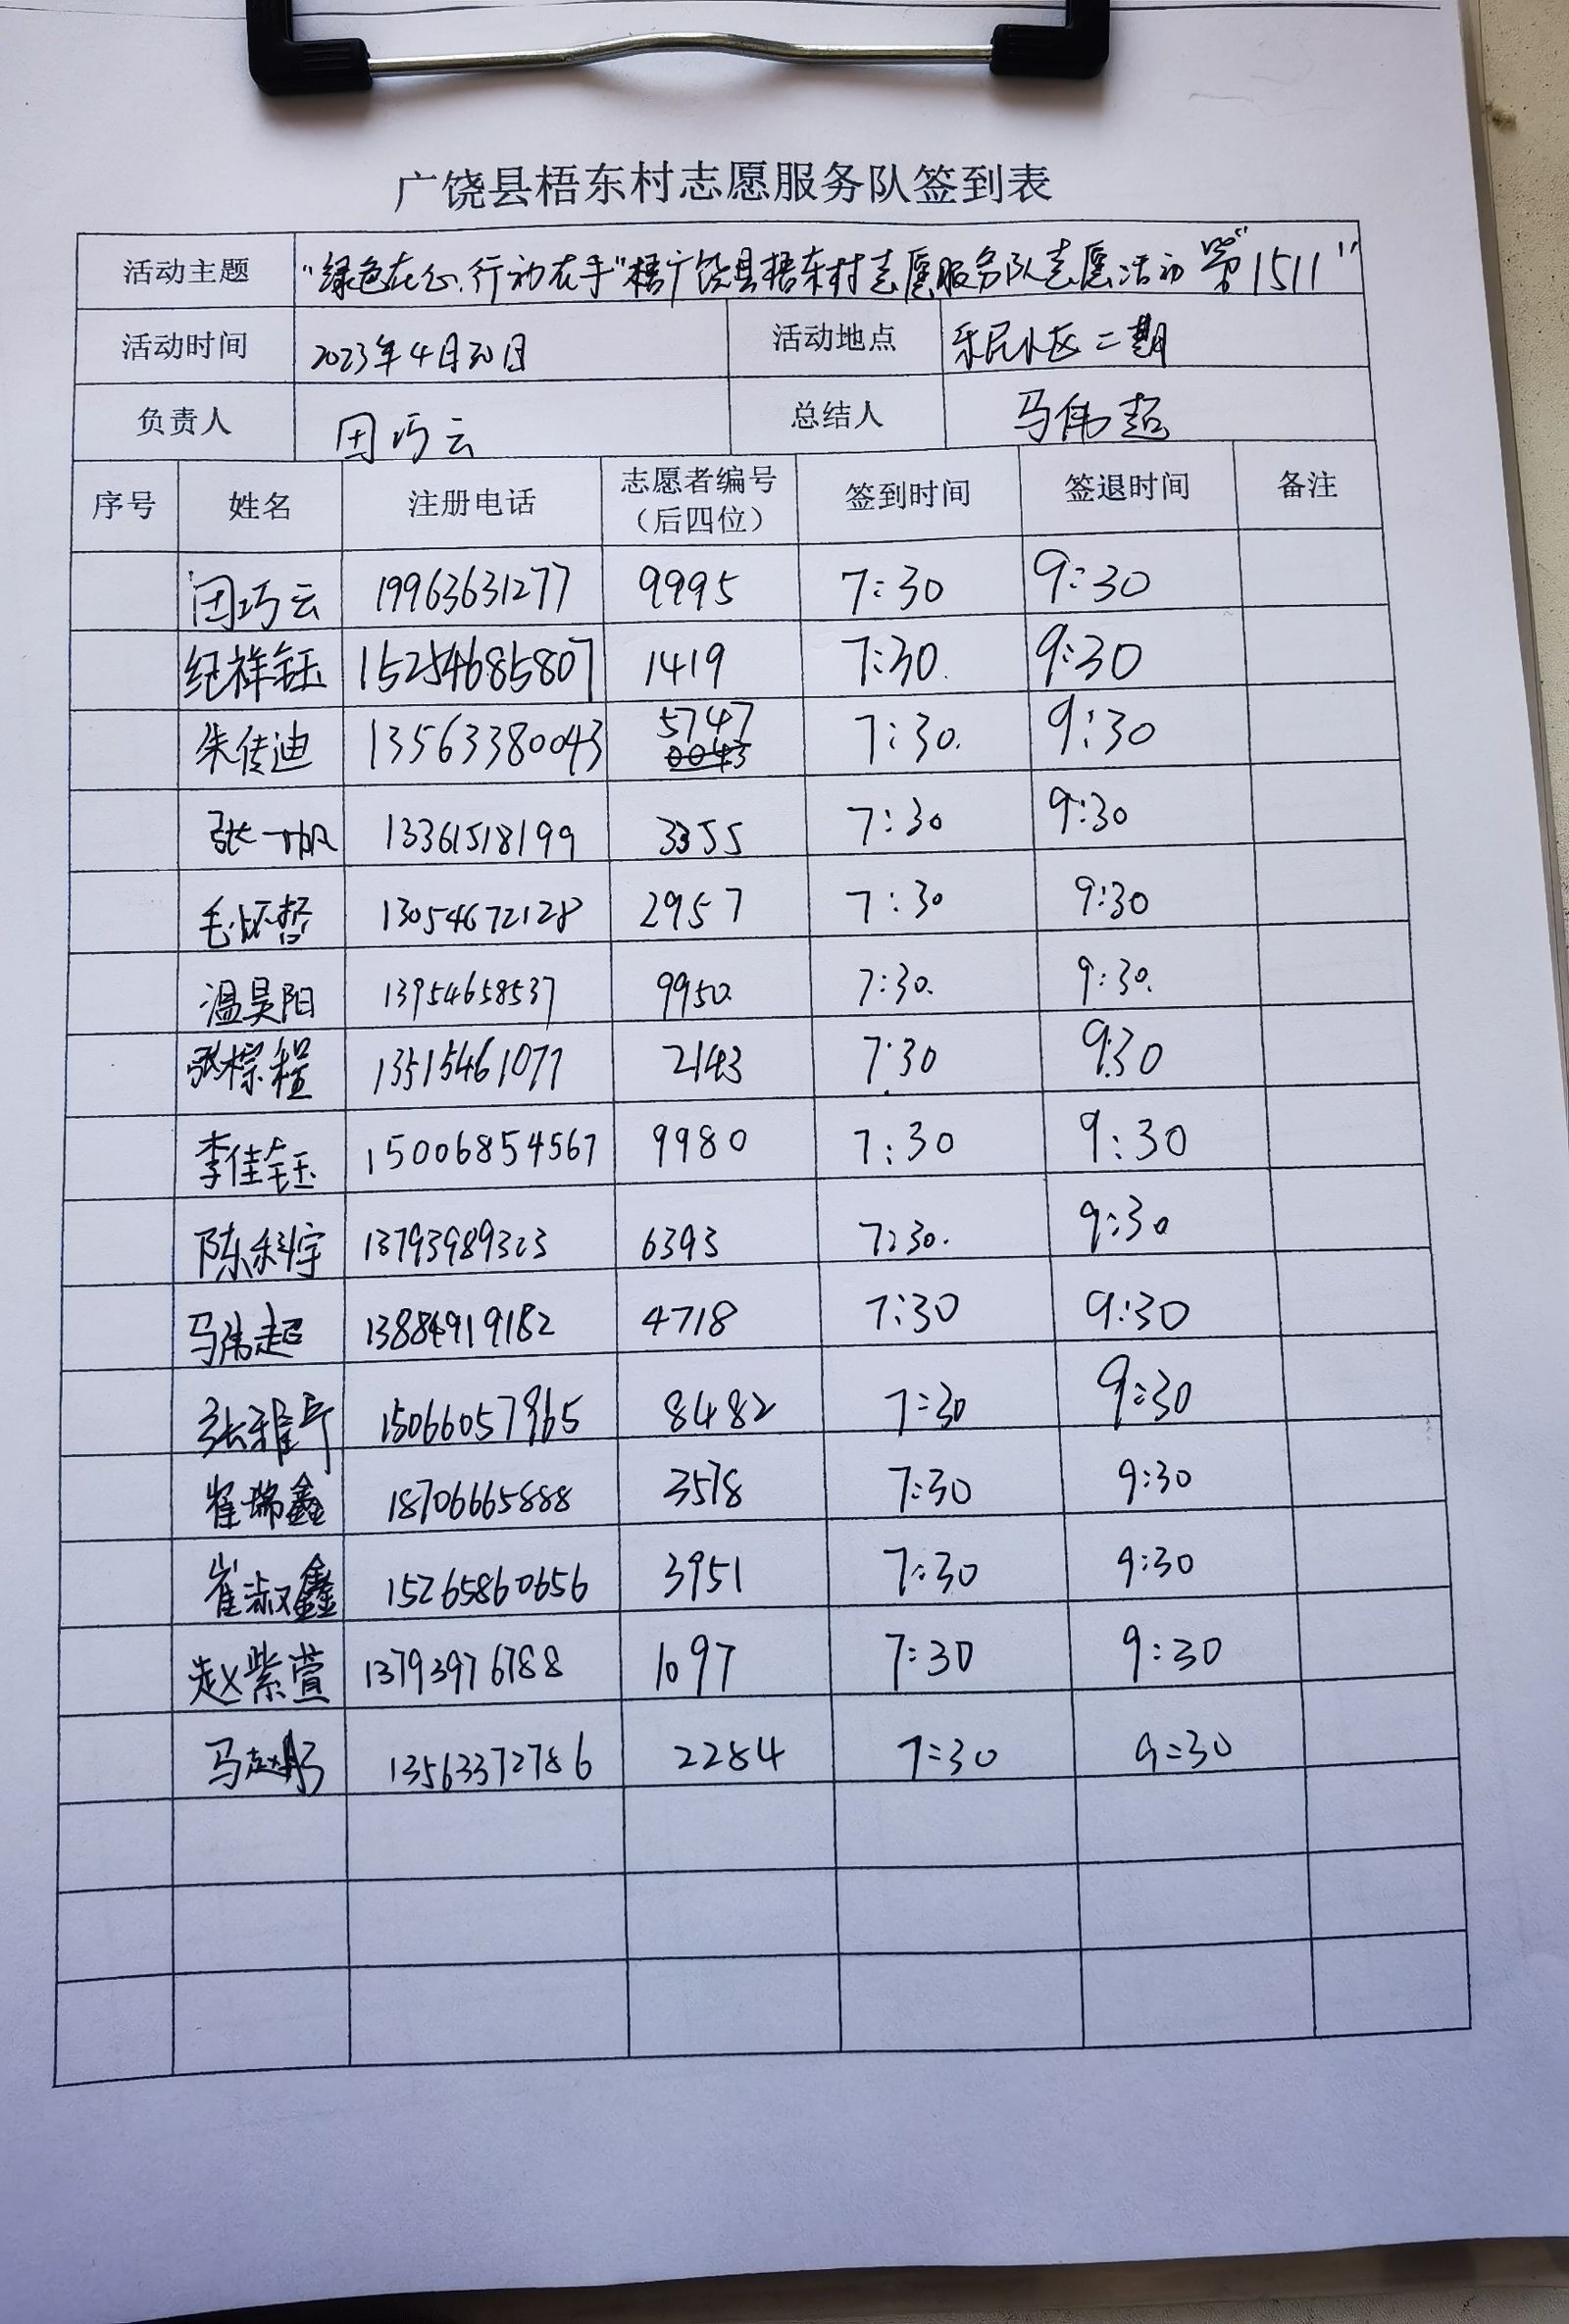 广饶县梧东村志愿服务队签到表
活动主题 "绿色在心.行动在手"梧广饶县梧东村志愿服务队志愿活动"第1511"
活动时间 2023年4月30日 活动地点 乐民小区二期
负责人 田巧云 总结人 马伟超
序号 姓名 注册电话 志愿者编号（后四位） 签到时间 签退时间 备注
田巧云 19963631277 9995 7:30 9:30
纪祥钰 15254685807 1419 7:30. 9:30
朱传迪 13563380043 5747 0043 7:30. 9:30
张一帆 13361518199 3355 7:30 9:30
毛怀哲 13054672128 2957 7:30 9:30
温昊阳 13954658537 9950. 7:30. 9:30.
张棕程 13515461077 2143 7:30 9:30
李佳钰 15006854567 9980 7:30 9:30
陈科宇 13793989323 6393 7:30. 9:30
马伟超 13884919182 4718 7:30 9:30
张雅 15066057965 8482 7:30 9:30
崔瑞鑫 18706665888 3578 7:30 9:30
崔淑鑫 15265860656 3951 7:30 9:30
赵紫萱 13793976788 1097 7:30 9:30
马赵 13563372786 2284 7:30 9:30